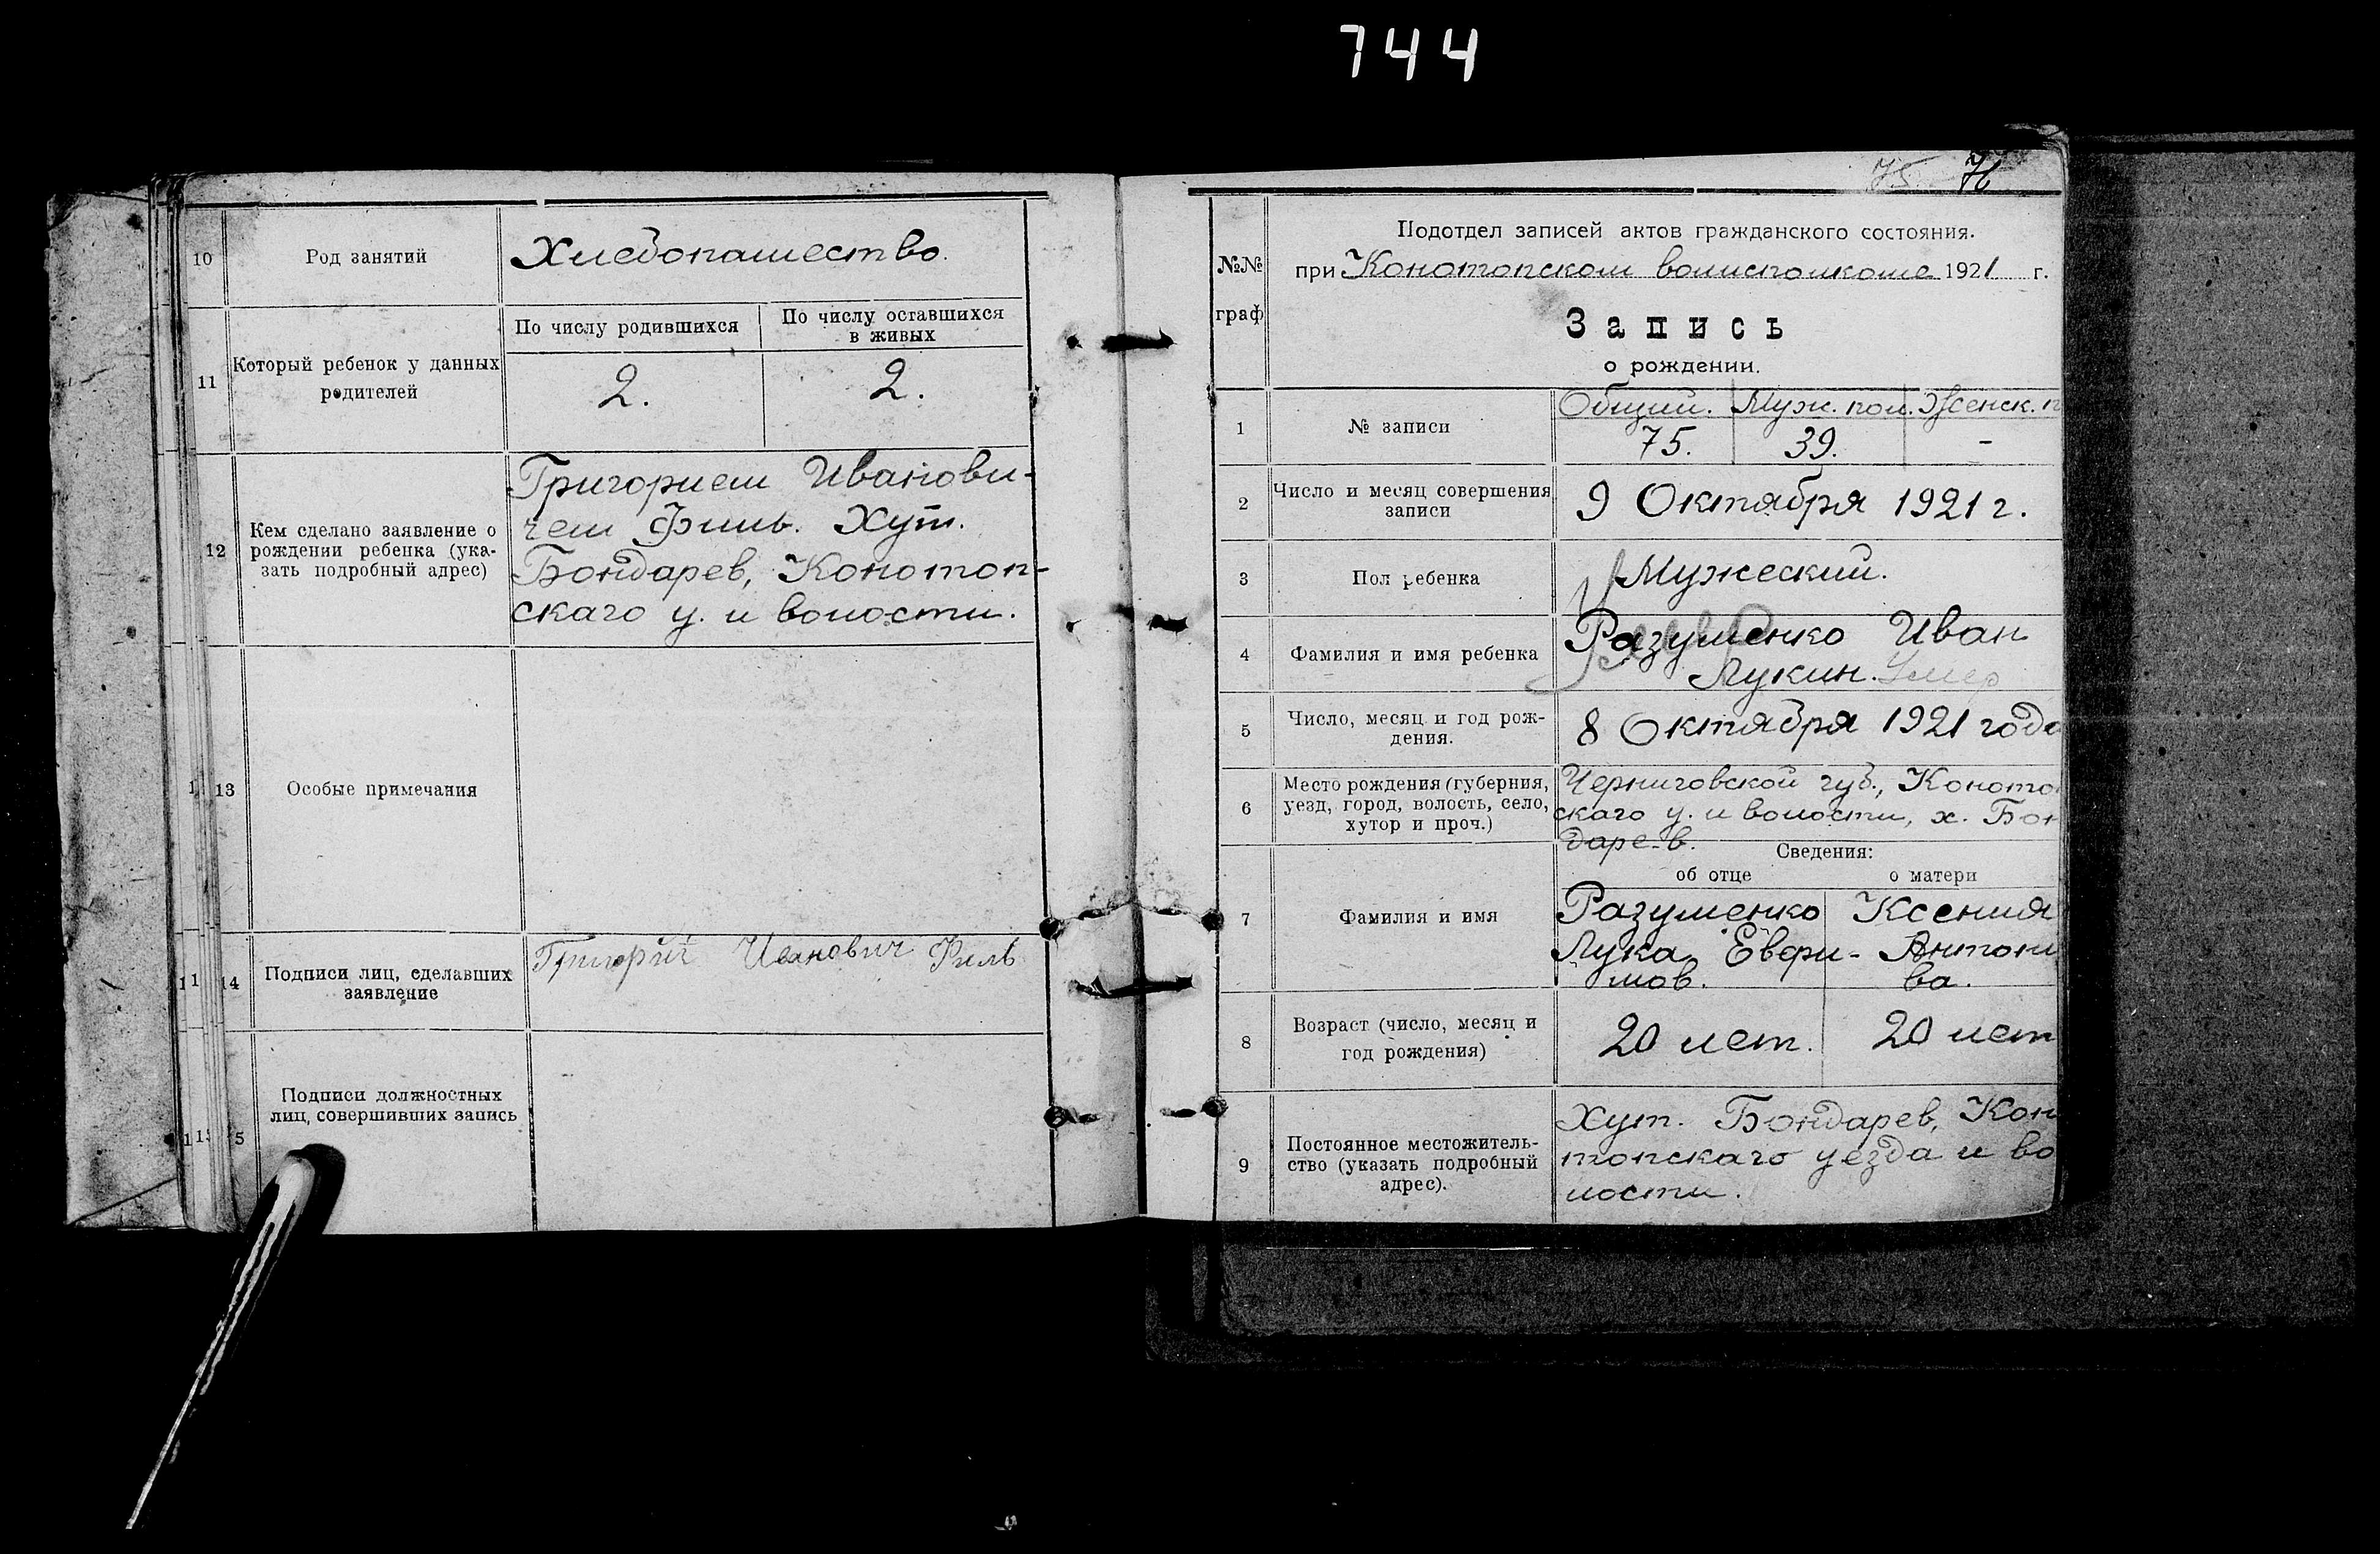 744
10
Род занятий
Хлебопашество.
11
Который ребенок у данных
родителей
По числу родившихся
По числу оставшихся
в живых
2.
2.
12
Кем сделано заявление о
рождении ребенка (ука-
зать подробный адрес)
Григорием Иванови-
чем Филь. Хут.
Бондарев, Конотоп-
скаго у. и волости.
13
Особые примечания
14
Подписи лиц, сделавших
заявление
Григорий Иванович Филь
5
Подписи должностных
лиц, совершивших запись
75
№№
граф
Подотдел записей актов гражданского состояния.
при Конотопском волисполкоме 1921 г.
Запись
о рождении.
1
№ записи
Общий. Муж. пол. Женск. п
75. 39. -
2
Число и месяц совершения
записи
9 Октября 1921 г.
3
Пол ребенка
Мужеский.
4
Фамилия и имя ребенка
Разуменко Иван
Лукин. Умер
5
Число, месяц и год рож-
дения.
8 Октября 1921 года
6
Место рождения (губерния,
уезд, город, волость, село,
хутор и проч.)
Черниговской губ., Коното
скаго у. и волости, х. Бон
дарев.
Сведения:
об отце
о матери
7
Фамилия и имя
Разуменко
Лука Еври-
мов.
Ксения
Антони
ва.
8
Возраст (число, месяц и
год рождения)
20 лет.
20 лет
9
Постоянное местожитель-
ство (указать подробный
адрес).
Хут. Бондарев, Кон
топскаго уезда и во
лости.